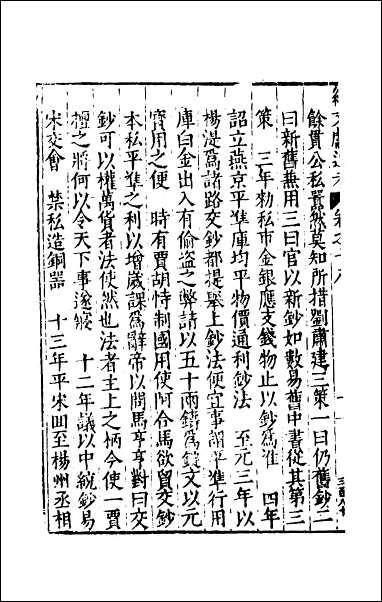 餘貫公私囂然莫知所措劉肅建三策一曰仍舊鈔二
曰新舊兼用三曰官以新鈔如數易舊中書從其第三
策　三年勑私市金銀應支錢物止以鈔爲准　四年
詔立燕京平準庫均平物價通利鈔法　至元三年以
楊湜爲諸路交鈔都提舉上鈔法便宜事謂平準行用
庫白金出入有偷盜之弊請以五十兩鑄爲錠文以元
寳用之便　時有賈胡恃制國用使阿合馬欲貿交鈔
本私平準之利以增歲課爲辭帝以問馬亨亨對曰交
鈔可以權萬貨者法使然也法者主上之柄今使一賈
擅之將何以令天下事遂寢　十二年議以中統鈔易
宋交會　禁私造銅器　十三年平宋回至楊州丞相